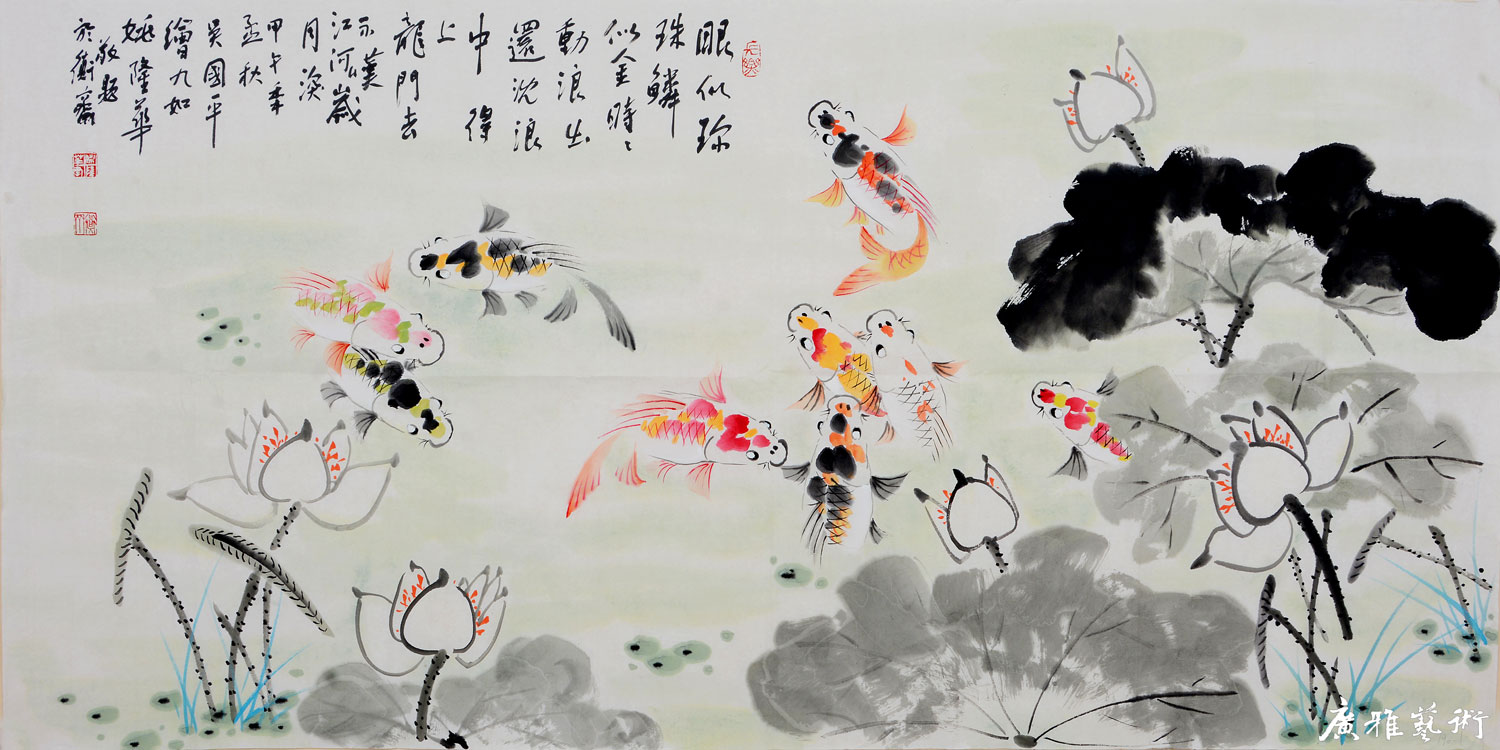 眼似珍
珠鱗
似金時〻
動浪出
還沈浪
中得
上
龍門去
不嘆
江河歲
月深
甲午年
孟秋
吳國平
繪九如
姚隆華
敬題
於衡齋
長樂
廣雅藝術